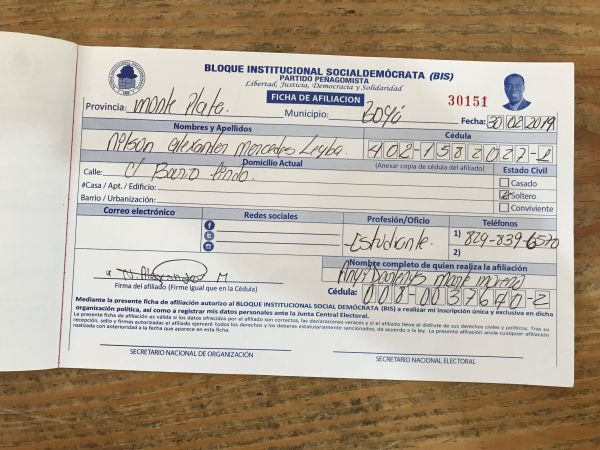 BLOQUE INSTITUCIONAL SOCIALDEMÓCRATA (BIS)
PARTIDO PEÑAGOMISTA
Libertad, Justicia, Democracia y Solidaridad
FICHA DE AFILIACION
30151
Provincia: Monte Plata. Municipio: Fecha: 30/02/2019
Nombres y Apellidos Cédula
Nilson Alexander Mercedes Leyba. 402-1582027-2
Domicilio Actual (Anexar copia de cédula del afiliado) Estado Civil
Calle: C/ Barrio Lindo. Casado
#Casa / Apt. / Edificio: Soltero
Barrio / Urbanización: Conviviente
Correo electrónico Redes sociales Profesión/Oficio Teléfonos
Estudiante. 1) 829-839-6570
2)
Nombre completo de quien realiza la afiliación
Firma del afiliado (Firme igual que en la Cédula)
Cédula: 008-0037640-2
Mediante la presente ficha de afiliación autorizo al BLOQUE INSTITUCIONAL SOCIAL DEMÓCRATA (BIS) a realizar mi inscripción única y exclusiva en dicha
organización política, así como a registrar mis datos personales ante la Junta Central Electoral.
La presente ficha de afiliación es válida si los datos ofrecidos por el afiliado son correctos, las declaraciones veraces y si el afiliado tiene el disfrute de sus derechos civiles y políticos. Tras su
recepción, sello y firmas autorizadas el afiliado ejercerá todos los derechos y los deberes estatutariamente sancionados, de acuerdo a la ley. La presente afiliación anula cualquier afiliación
realizada con anterioridad a la fecha que aparece en esta ficha.
SECRETARIO NACIONAL DE ORGANIZACIÓN SECRETARIO NACIONAL ELECTORAL